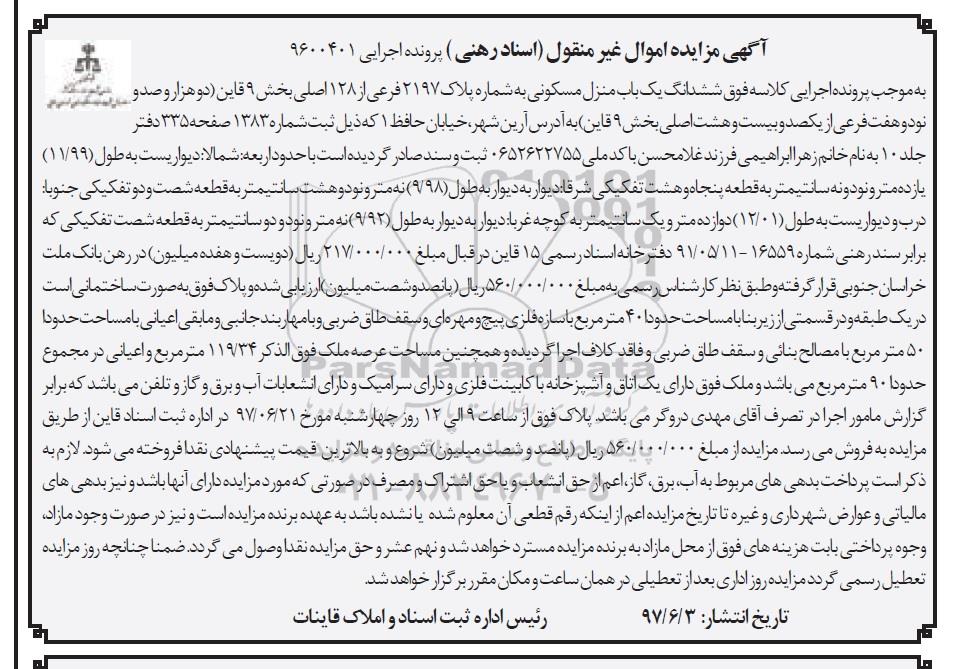 آگهی مزایده اموال غیر منقول (اسناد رهنی) پرونده اجرایی ۹۶۰۰۴۰۱
به موجب پرونده اجرایی کلاسه فوق ششدانگ یک باب منزل مسکونی به شماره پلاک ۲۱۹۷ فرعی از ۱۲۸ اصلی بخش ۹ قاین (دو هزار و صد و
نود و هفت فرعی از یکصد و بیست و هشت اصلی بخش ۹ قاین) به آدرس آرین شهر، خیابان حافظ ۱ که ذیل ثبت شماره ۱۳۸۳ صفحه ۳۳۵ دفتر
جلد ۱۰ به نام خانم زهرا ابراهیمی فرزند غلامحسن با کد ملی ۰۶۵۲۶۲۲۷۵۵ ثبت و سند صادر گردیده است با حدود اربعه: شمالا: دیواریست به طول (۱۱/۹۹)
یازده متر و نود و نه سانتیمتر به قطعه پنجاه و هشت تفکیکی شرقا: دیوار به دیوار به طول (۹/۹۸) نه متر و نود و هشت سانتیمتر به قطعه شصت و دو تفکیکی جنوبا:
درب و دیواریست به طول (۱۲/۰۱) دوازده متر و یک سانتیمتر به کوچه غربا: دیوار به دیوار به طول (۹/۹۲) نه متر و نود و دو سانتیمتر به قطعه شصت تفکیکی که
برابر سند رهنی شماره ۱۶۵۵۹-۹۱/۰۵/۱۱ دفترخانه اسناد رسمی ۱۵ قاین در قبال مبلغ ۲۱۷/۰۰۰/۰۰۰ ریال (دویست و هفده میلیون) در رهن بانک ملت
خراسان جنوبی قرار گرفته و طبق نظر کارشناس رسمی به مبلغ ۵۶۰/۰۰۰/۰۰۰ ریال (پانصد و شصت میلیون) ارزیابی شده و پلاک فوق به صورت ساختمانی است
در یک طبقه و در قسمتی از زیر بنا با مساحت حدودا ۴۰ متر مربع با سازه فلزی پیچ و مهره ای و سقف طاق ضربی و با مهاربند جانبی و مابقی اعیانی با مساحت حدودا
۵۰ متر مربع با مصالح بنائی و سقف طاق ضربی و فاقد کلاف اجرا گردیده و همچنین مساحت عرصه ملک فوق الذکر ۱۱۹/۳۴ مترمربع و اعیانی در مجموع
حدودا ۹۰ مترمربع می باشد و ملک فوق دارای یک اتاق و آشپزخانه با کابینت فلزی و دارای سرامیک و دارای انشعابات آب و برق و گاز و تلفن می باشد که برابر
گزارش مامور اجرا در تصرف آقای مهدی دروگر می باشد. پلاک فوق از ساعت ۹ الی ۱۲ روز چهارشنبه مورخ ۹۷/۰۶/۲۱ در اداره ثبت اسناد قاین از طریق
مزایده به فروش می رسد. مزایده از مبلغ ۵۶۰/۰۰۰/۰۰۰ ریال (پانصد و شصت میلیون) شروع و به بالاترین قیمت پیشنهادی نقدا فروخته می شود. لازم به
ذکر است پرداخت بدهی های مربوط به آب، برق، گاز، اعم از حق انشعاب و یا حق اشتراک و مصرف در صورتی که مورد مزایده دارای آنها باشد و نیز بدهی های
مالیاتی و عوارض شهرداری و غیره تا تاریخ مزایده اعم از اینکه رقم قطعی آن معلوم شده یا نشده باشد به عهده برنده مزایده است و نیز در صورت وجود مازاد،
وجوه پرداختی بابت هزینه های فوق از محل مازاد به برنده مزایده مسترد خواهد شد و نهم عشر و حق مزایده نقدا وصول می گردد. ضمنا چنانچه روز مزایده
تعطیل رسمی گردد مزایده روز اداری بعد از تعطیلی در همان ساعت و مکان مقرر برگزار خواهد شد.
تاریخ انتشار: ۹۷/۶/۳ رئیس اداره ثبت اسناد و املاک قاینات
ParsNamadData
۰۲۱-۸۸۳۴۹۶۷۰-۵